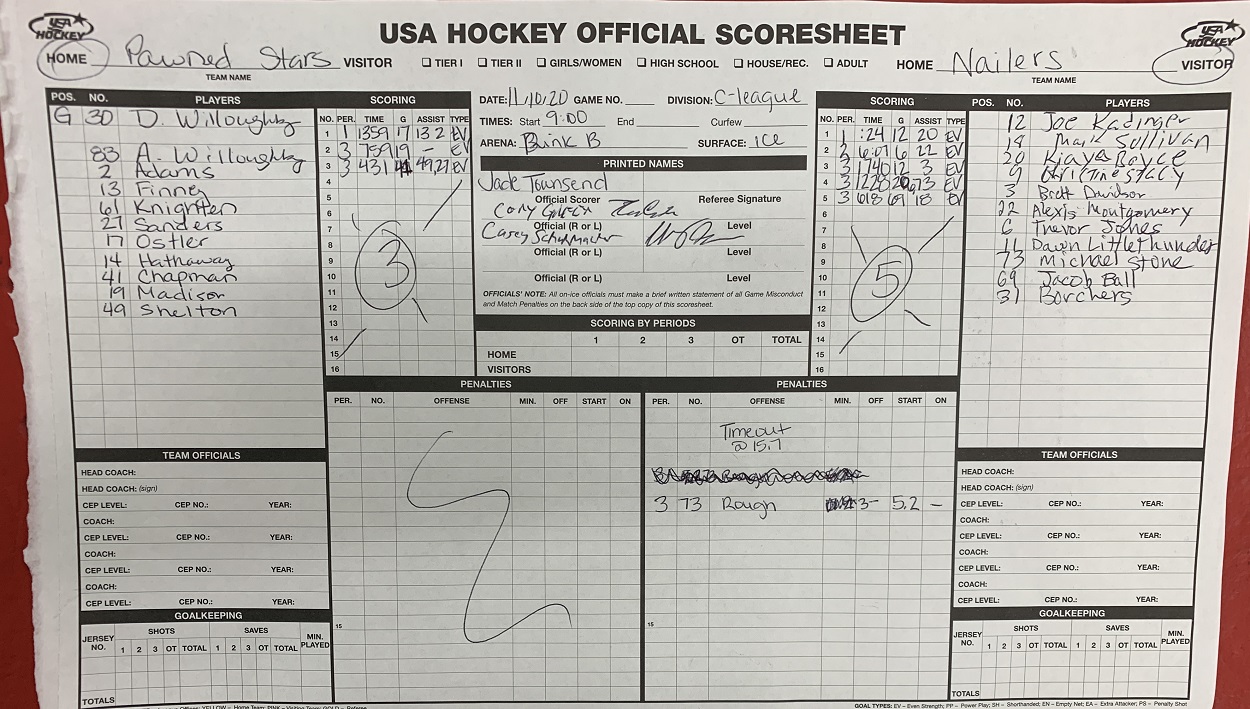 USA HOCKEY
USA HOCKEY OFFICIAL SCORESHEET
USA HOCKEY
HOME Pawned Stars VISITOR
TEAM NAME
☐ TIER I ☐ TIER II ☐ GIRLS/WOMEN ☐ HIGH SCHOOL ☐ HOUSE/REC. ☐ ADULT
HOME Nailers VISITOR
TEAM NAME
POS. NO. PLAYERS
G 30 D. Willoughby
83 A. Willoughby
2 Adams
13 Finney
61 Knighten
27 Sanders
17 Ostler
14 Hathaway
41 Chapman
19 Madison
49 Shelton
SCORING
NO. PER. TIME G ASSIST TYPE
1 1 1359 17 13 2 EV
2 3 759 19 - EV
3 3 431 41 49,27 EV
4
5
6
7
8
9
10
11
12
13
14
15
16
3
DATE: 11/10/20 GAME NO. DIVISION: C-league
TIMES: Start 9:00 End Curfew
ARENA: Rink B SURFACE: ice
PRINTED NAMES
Jade Townsend
Official Scorer Referee Signature
Official (R or L) Level
Casey
Official (R or L) Level
Official (R or L) Level
OFFICIALS' NOTE: All on-ice officials must make a brief written statement of all Game Misconduct
and Match Penalties on the back side of the top copy of this scoresheet.
SCORING BY PERIODS
1 2 3 OT TOTAL
HOME
VISITORS
SCORING
NO. PER. TIME G ASSIST TYPE
1 1 :24 12 20 EV
2 3 6:07 6 22 EV
3 3 740 12 3 EV
4 3 1228 20 6,73 EV
5 3 618 69 18 EV
6
7
8
9
10
11
12
13
14
15
16
5
POS. NO. PLAYERS
12 Joe Kadinger
18 Mark Sullivan
20 Kiaya Boyce
9 Christine Stacy
3 Brett Davidson
22 Alexis Montgomery
6 Trevor Jones
Dawn Littlethunder
73 Michael Stone
69 Jacob Ball
31 Borchers
PENALTIES
PER. NO. OFFENSE MIN. OFF START ON
15
PENALTIES
PER. NO. OFFENSE MIN. OFF START ON
Timeout
@ 15.7
3 73 Rough 3- 5.2 -
15
TEAM OFFICIALS
HEAD COACH:
HEAD COACH: (sign)
CEP LEVEL: CEP NO.: YEAR:
COACH:
CEP LEVEL: CEP NO.: YEAR:
COACH:
CEP LEVEL: CEP NO.: YEAR:
COACH:
CEP LEVEL: CEP NO.: YEAR:
GOALKEEPING
JERSEY NO. SHOTS SAVES MIN. PLAYED
1 2 3 OT TOTAL 1 2 3 OT TOTAL
TOTALS
TEAM OFFICIALS
HEAD COACH:
HEAD COACH: (sign)
CEP LEVEL: CEP NO.: YEAR:
COACH:
CEP LEVEL: CEP NO.: YEAR:
COACH:
CEP LEVEL: CEP NO.: YEAR:
COACH:
CEP LEVEL: CEP NO.: YEAR:
GOALKEEPING
JERSEY NO. SHOTS SAVES MIN. PLAYED
1 2 3 OT TOTAL 1 2 3 OT TOTAL
TOTALS
GOAL TYPES: EV – Even Strength; PP – Power Play; SH – Shorthanded; EN – Empty Net; EA – Extra Attacker; PS – Penalty Shot